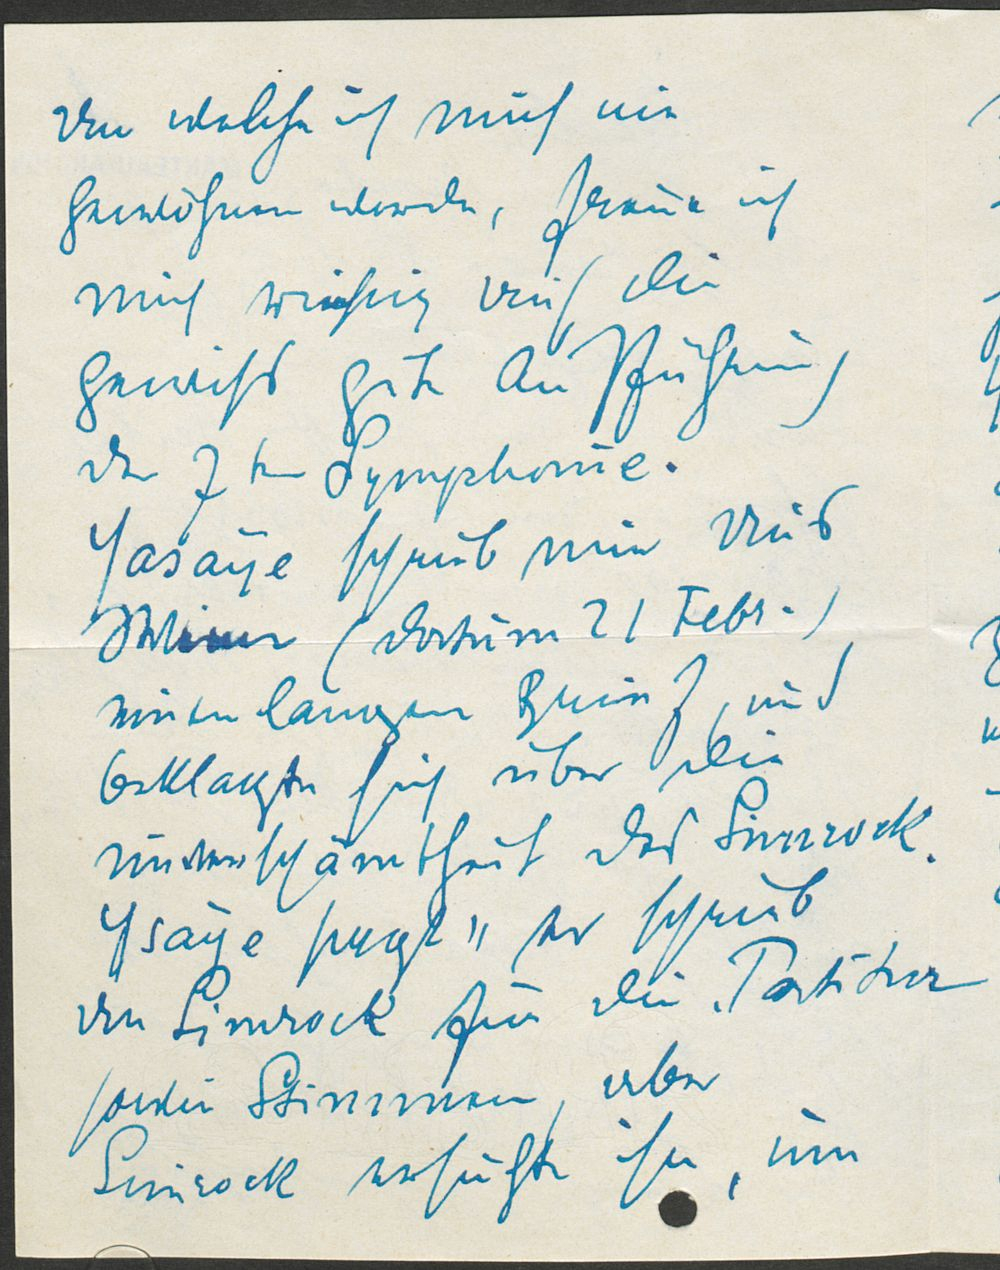 an welche ich mich nie
gewöhnen werde, freue ich
mich riesig auf die
gewiss gute Aufführung
der 7ten Symphonie.
Yasaÿe schrieb mir aus
(Datum 21 Febr.)
einen langen Brief, und
beklagte sich über die
Unverschämtheit des Simrock.
Ysaÿe sagt „ er schrieb
an Simrock für die Partitur
sowie Stimmen, aber
Simrock ersuchte ihn, um